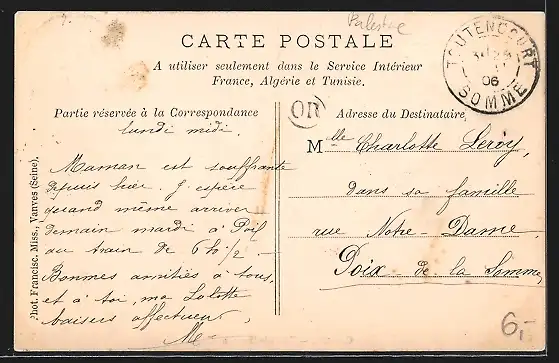 Palestine
CARTE POSTALE
A utiliser seulement dans le Service Intérieur
France, Algérie et Tunisie.
Partie réservée à la Correspondance
Adresse du Destinataire
lundi midi.
Maman est souffrante
depuis hier. J'espère
quand même arriver
demain mardi à Poix
au train de 6h 1/2 –
Bonnes amitiés à tous,
et à toi, ma Lolotte
baisers affectueux
M
OR
Mlle Charlotte Leroy,
dans sa famille
rue Notre-Dame,
Poix de la Somme
TOUTENCOURT
06
SOMME
Phot. Francisc. Miss., Vanves (Seine).
6,-